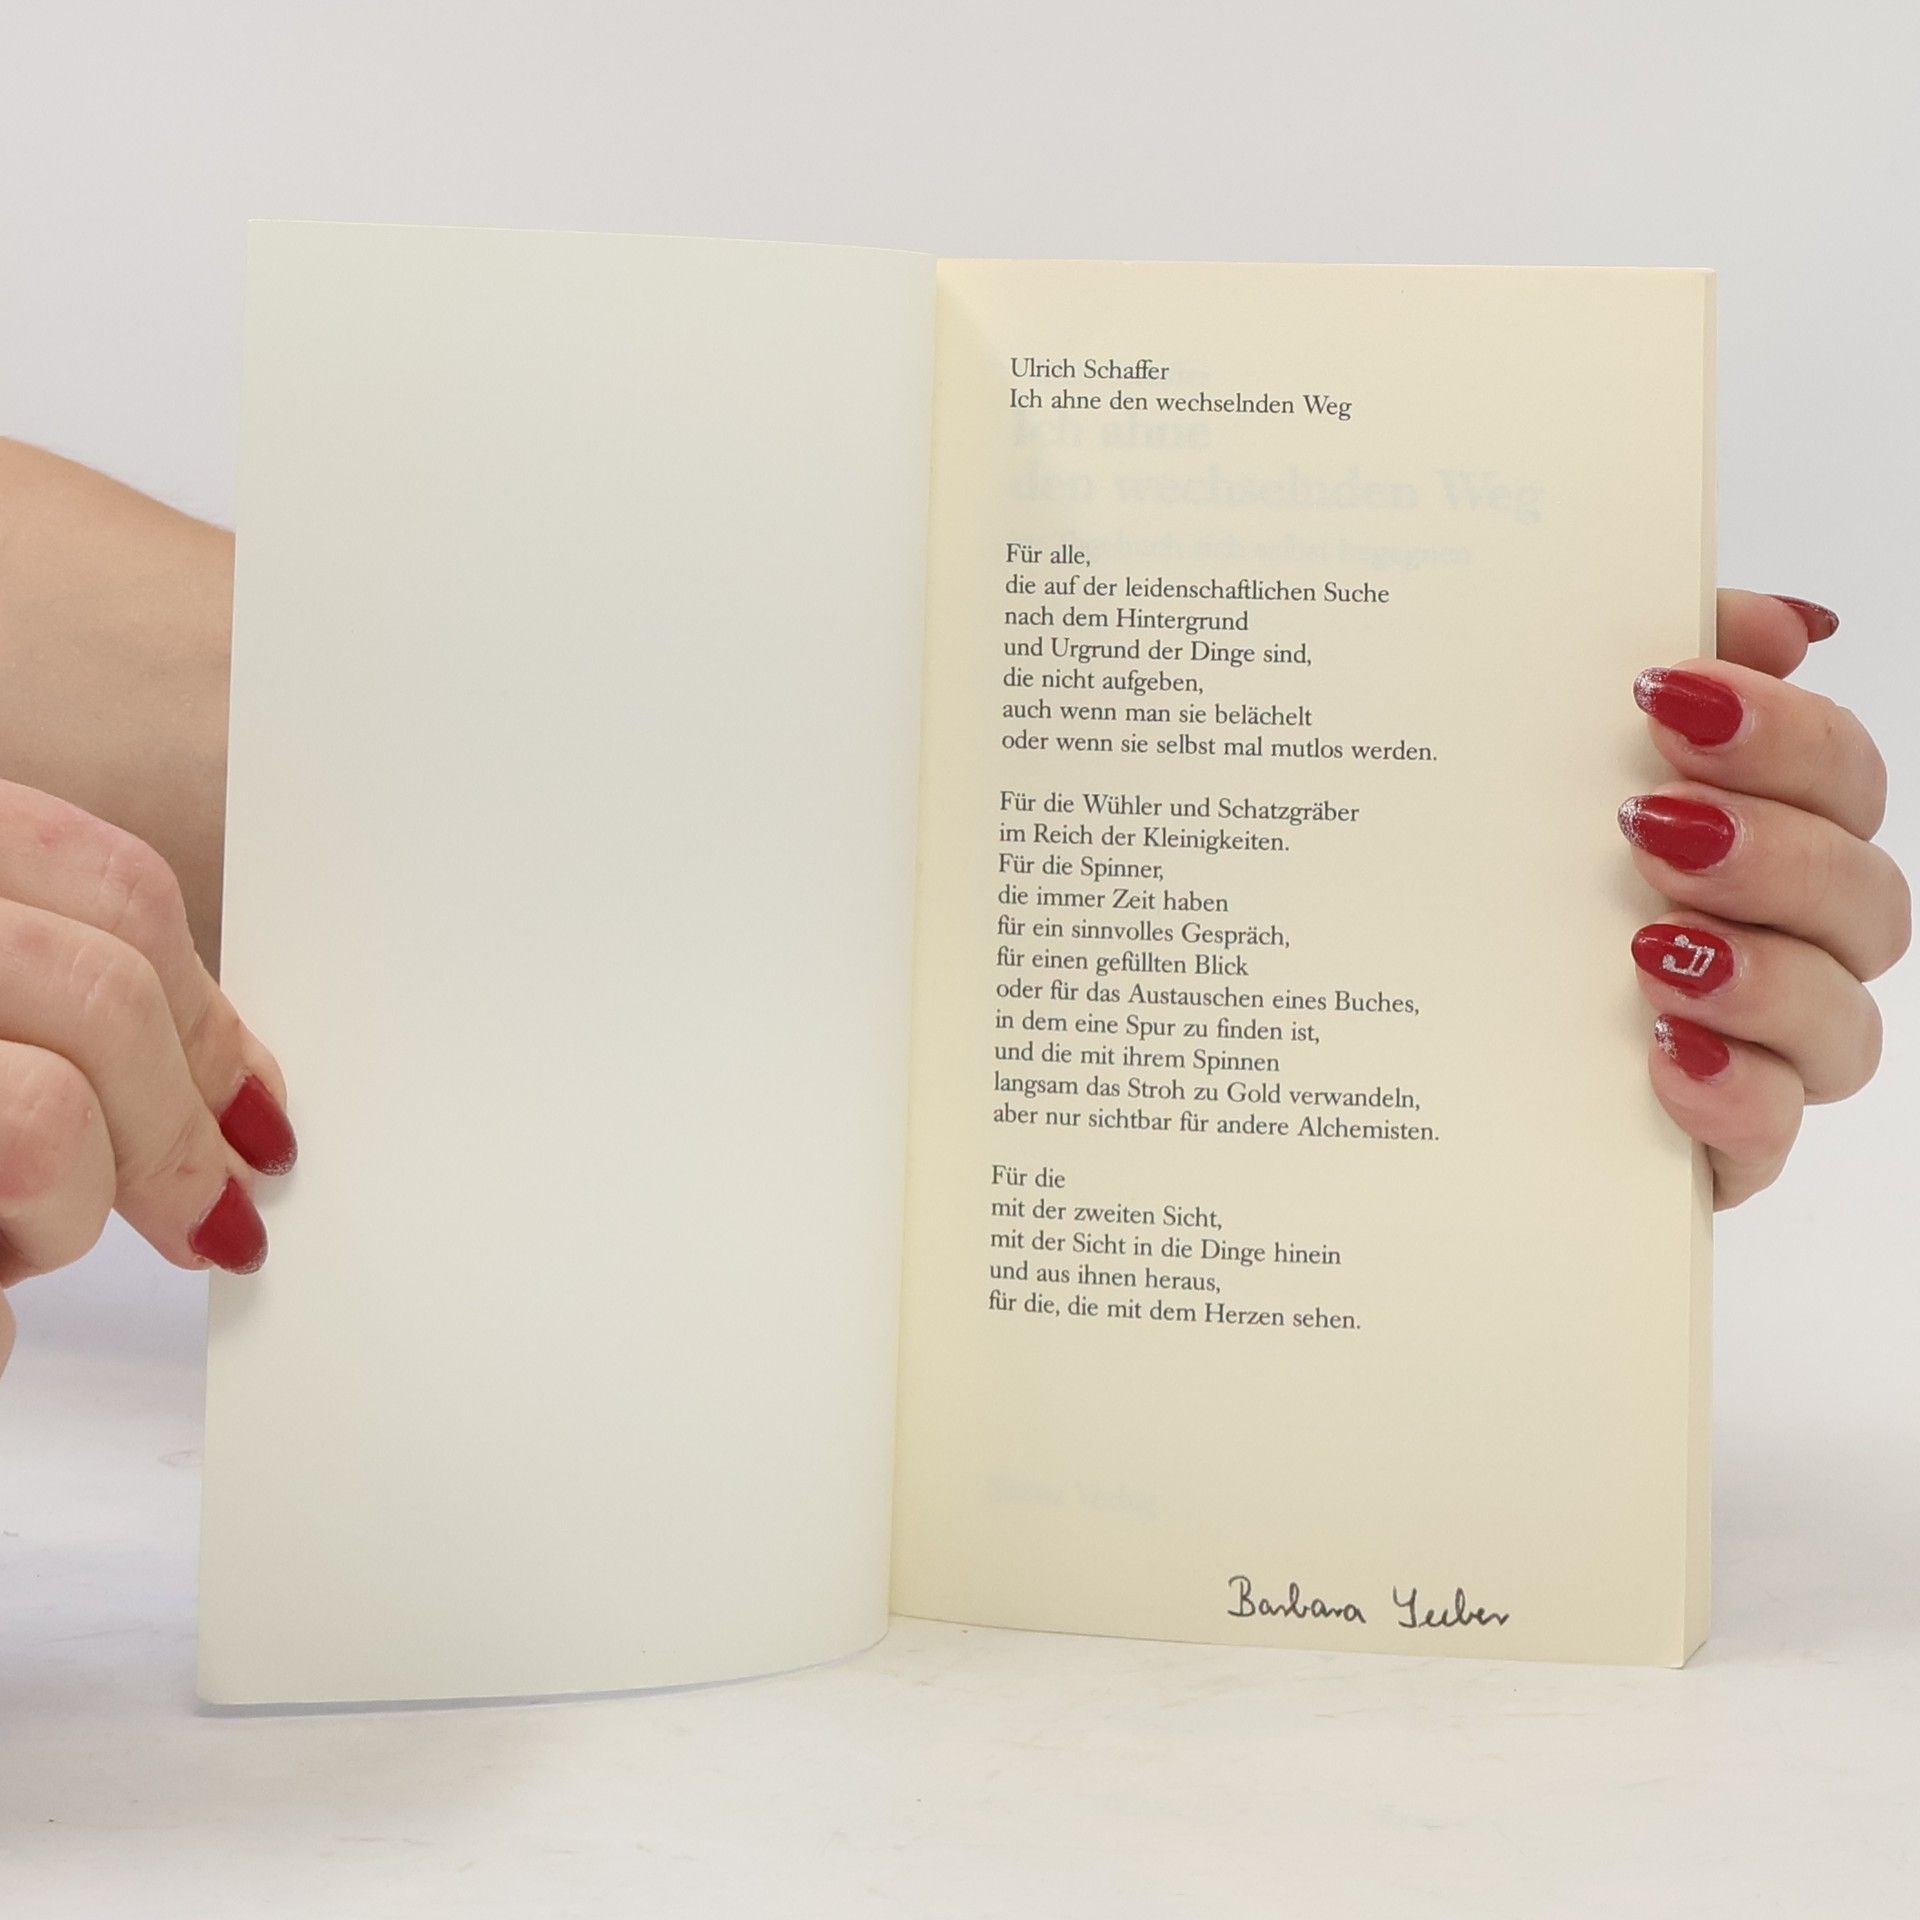 Ulrich Schaffer
Ich ahne den wechselnden Weg
Ich ahne
den wechselnden Weg
Für alle,
die auf der leidenschaftlichen Suche
nach dem Hintergrund
und Urgrund der Dinge sind,
die nicht aufgeben,
auch wenn man sie belächelt
oder wenn sie selbst mal mutlos werden.
Für die Wühler und Schatzgräber
im Reich der Kleinigkeiten.
Für die Spinner,
die immer Zeit haben
für ein sinnvolles Gespräch,
für einen gefüllten Blick
oder für das Austauschen eines Buches,
in dem eine Spur zu finden ist,
und die mit ihrem Spinnen
langsam das Stroh zu Gold verwandeln,
aber nur sichtbar für andere Alchemisten.
Für die
mit der zweiten Sicht,
mit der Sicht in die Dinge hinein
und aus ihnen heraus,
für die, die mit dem Herzen sehen.
Barbara